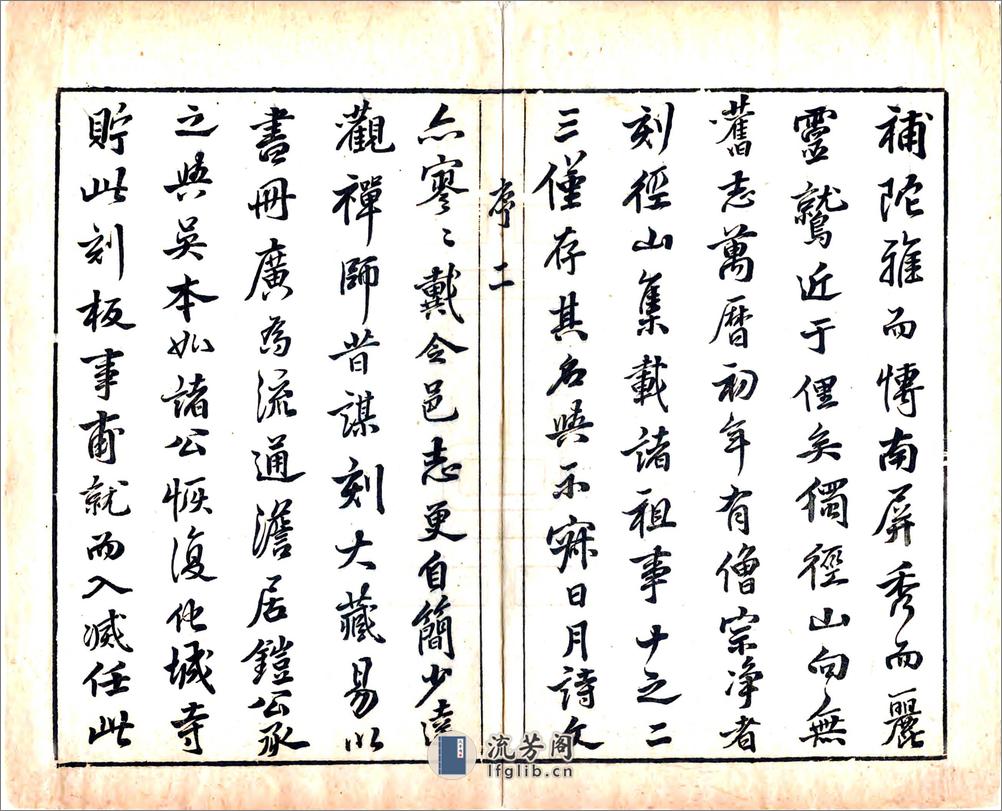 補陀雅而博南屏秀而麗
靈鷲近于俚矣獨徑山向無
舊志萬曆初年有僧宗淨者
刻徑山集載諸祖事十之二
三僅存其名與示寂日月詩文
序 二
亦寥〻戴令邑志更自簡少達
觀禪師昔謀刻大藏易以
書冊廣為流通澹居鎧公承
之與吳本如諸公恢復化城寺
貯此刻板事甫就而入滅任此
流芳阁
lfglib.cn